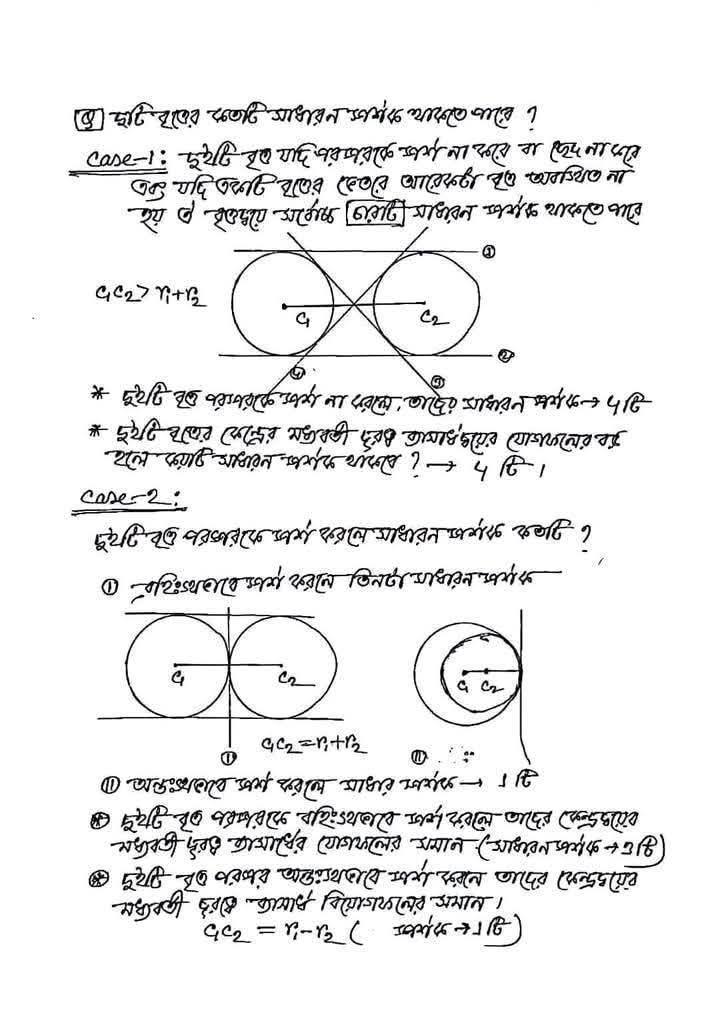 Q দুটি বৃত্তের কতটি সাধারন স্পর্শক থাকতে পারে ?
Case-1: দুইটি বৃত্ত যদি পরস্পরকে স্পর্শ না করে বা ছেদ না করে
এবং যদি একটি বৃত্তের ভেতরে আরেকটা বৃত্ত অবস্থিত না
হয় ঐ বৃত্তদ্বয়ে সর্বোচ্চ চারটি সাধারন স্পর্শক থাকতে পারে
①
C₁C₂ > r₁+r₂
C₁
C₂
②
④
③
* দুইটি বৃত্ত পরস্পরকে স্পর্শ না করলে, তাদের সাধারন স্পর্শক → ৪ টি
* দুইটি বৃত্তের কেন্দ্রের মধ্যবর্তী দূরত্ব ব্যাসার্ধদ্বয়ের যোগফলের বড়
হলে কয়টি সাধারন স্পর্শক থাকবে ? → ৪ টি ।
Case-2:
দুইটি বৃত্ত পরস্পরকে স্পর্শ করলে সাধারন স্পর্শক কতটি ?
① বহিঃস্থভাবে স্পর্শ করলে তিনটা সাধারন স্পর্শক
C₁
C₂
C₁
C₂
C₁C₂ = r₁+r₂
①
⑪
⑪ অন্তঃস্থভাবে স্পর্শ করলে সাধার স্পর্শক → ১ টি
* দুইটি বৃত্ত পরস্পরকে বহিঃস্থভাবে স্পর্শ করলে তাদের কেন্দ্রদ্বয়ের
মধ্যবর্তী দূরত্ব ব্যাসার্ধের যোগফলের সমান (সাধারন স্পর্শক → ৩টি)
* দুইটি বৃত্ত পরস্পর অন্তঃস্থভাবে স্পর্শ করলে তাদের কেন্দ্রদ্বয়ের
মধ্যবর্তী দূরত্ব ব্যাসার্ধ বিয়োগফলের সমান ।
C₁C₂ = r₁-r₂ ( স্পর্শক → ১টি)